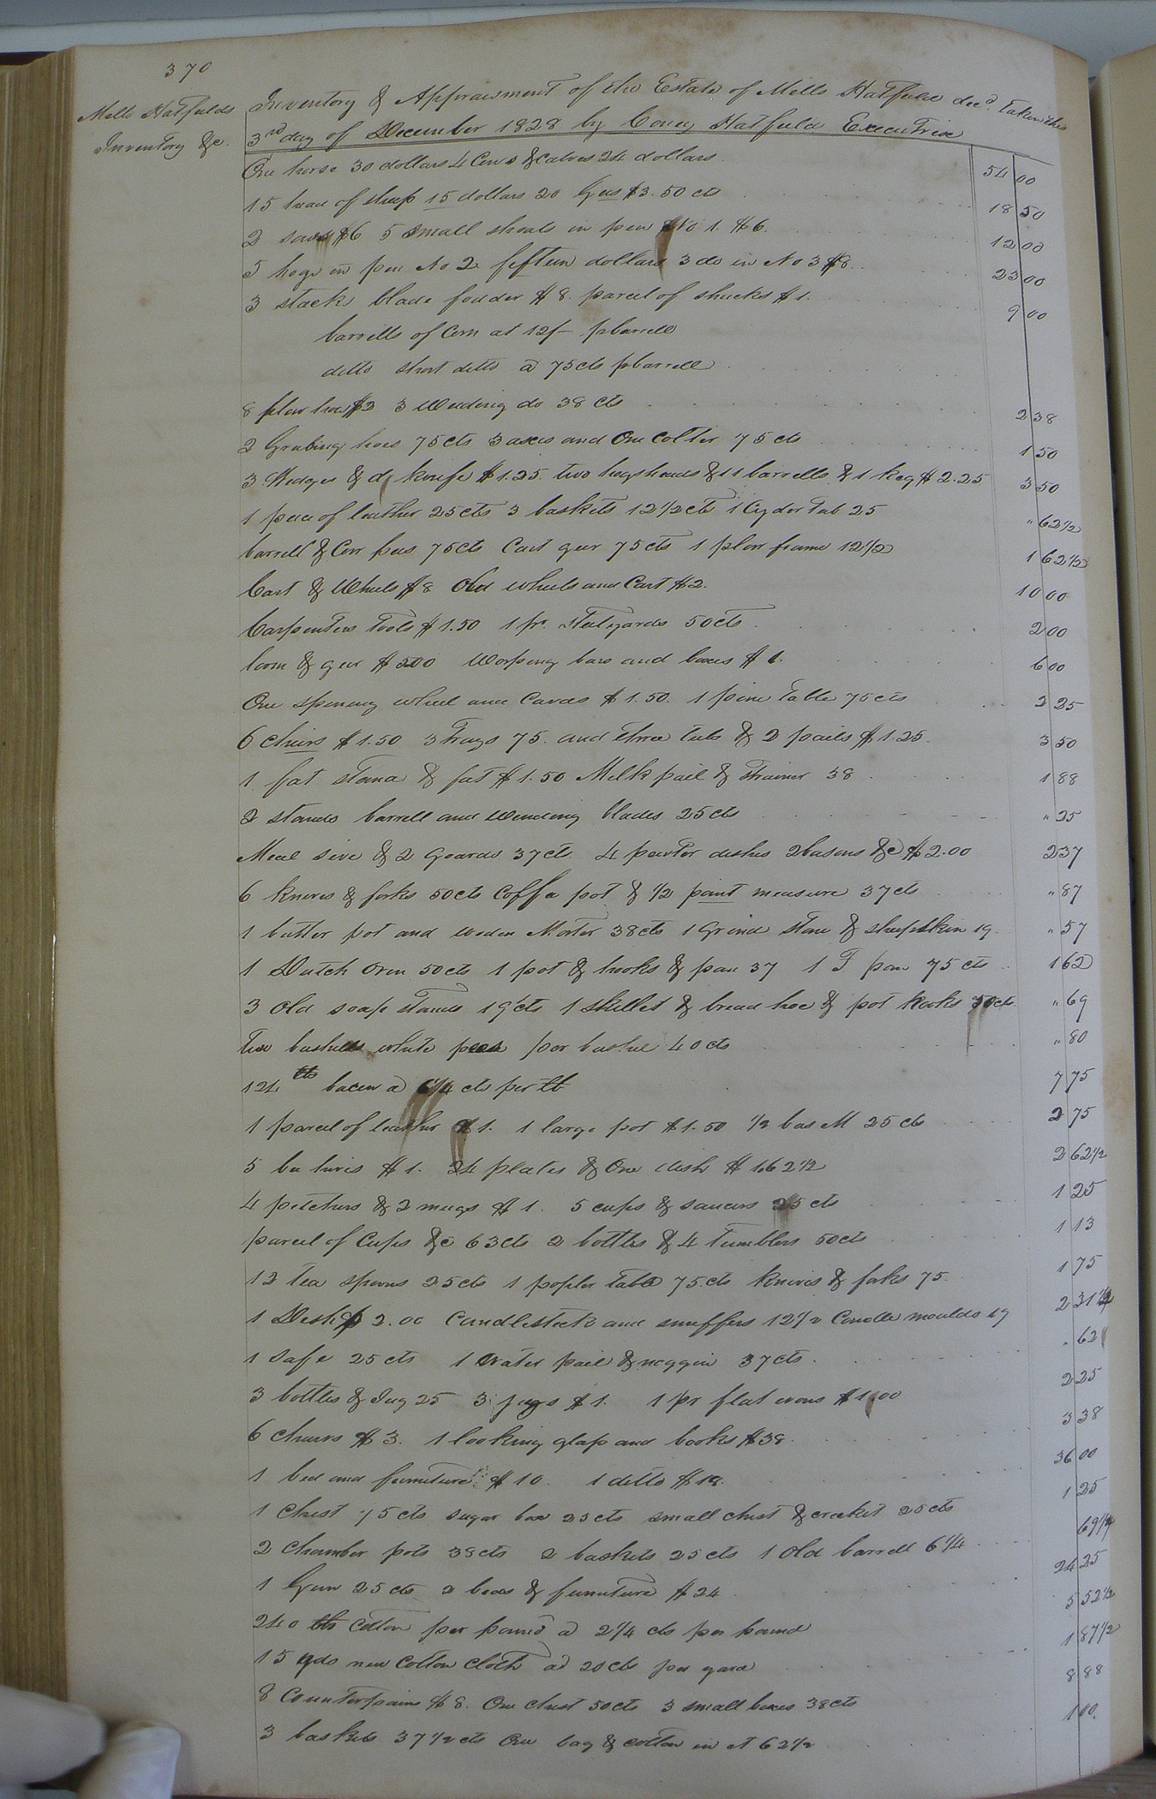 370
Mills Hatfields
Inventory &c.
Inventory & Appraisment of the Estate of Mills Hatfield decd. taken the
3rd day of December 1828 by Hatfield Executrix
One horse 30 dollars 4 Cows & Calves 24 dollars 54 00
15 head of sheep 15 dollars 20 Gees $3.50 cts 18 50
2 sows $6 5 small shoats in pen No 1. $6. 12 00
5 hogs in pen No 2 fifteen dollars 3 do in No 3 $8 23 00
3 stacks blade fodder $8 parcel of shucks $1. 9 00
barrells of Corn at 12/- pbarrell
ditto short ditto a 75cts pbarrell
8 plow hoes $2 3 Weeding do 38 cts 2 38
2 Grubing hoes 75cts 3 axes and One Colter 75 cts 1 50
3 Wedges & d knife $1.25. two hogsheads & 11 barrells & 1 keg $2.25 3 50
1 peice of leather 25cts 3 baskets 12 1/2cts 1 Cyder Tub 25 " 62 1/2
barrell & Corn peas 75cts Cart gear 75cts 1 plow frame 12 1/2 1 62 1/2
Cart & Wheels $8 Old wheels and Cart $2. 10 00
Carpenters Tools $1.50 1 pr. Stelyards 50cts 2 00
loom & gear $500 Worping bars and boxes $1. 6 00
One spinning wheel and Cards $1.50. 1 pine table 75cts 2 25
6 chairs $1.50 3 Trays 75. and three tubs & 2 pails $1.25. 3 50
1 fat stand & fat $1.50 Milk pail & strainer 38 1 88
2 stands barrell and Winding blades 25cts " 25
Meal sive & 2 Goards 37cts 4 pewter dishes 2 basons &c $2.00 2 37
6 knives & forks 50cts Coffe pot & 1/2 paint measure 37cts " 87
1 butter pot and wooden Morter 38cts 1 Grind stone & sheepskin 19 " 57
1 Dutch Oven 50cts 1 pot & hooks & pan 37 1 F pan 75 cts 1 62
3 Old soap stands 19cts 1 Skillet & bread hoe & pot hooks 50cts " 69
Two bushells white peas per bushel 40cts " 80
124 lbs bacon a 6 1/4 cts per lb 7 75
1 parcel of leather $1. 1 large pot $1.50 1/2 bus M 25 cts 2 75
5 hives $1. 24 plates & One dish $1.62 1/2 2 62 1/2
4 pitchers & 2 mugs $1. 5 cups & saucers 25 cts 1 25
parcel of Cups &c 63cts 2 bottles & 4 Tumblers 50cts 1 13
12 tea spoons 25cts 1 popler table 75.cts knives & forks 75 1 75
1 Desk $2.00 Candlestick and snuffers 12 1/2 Candle moulds 19 2 31 1/2
1 safe 25 cts 1 Water pail & noggin 37cts. " 62
3 bottles & Jug 25 3 jugs $1. 1 pr flat irons $1.00 2 25
6 Chairs $3. 1 looking glass and books $38 3 38
1 bed and furniture $10 1 ditto $ 36 00
1 chest 75cts sugar box 25cts small chest & crecket 25cts 1 25
2 Chamber pots 38cts 2 baskets 25cts 1 Old barrell 6 1/4 69 1/4
1 Gun 25cts 2 beds & furniture $24 24 25
240 lbs Cotton per pound a 2 1/4 cts per pound 5 52 1/2
15 yds new Cotton Cloth a 20cts per yard 1 87 1/2
8 Counterpains $8. One chest 50cts 3 small boxes 38cts 8 88
3 baskets 37 1/2cts One bag & cotton in it 62 1/2 1 00.